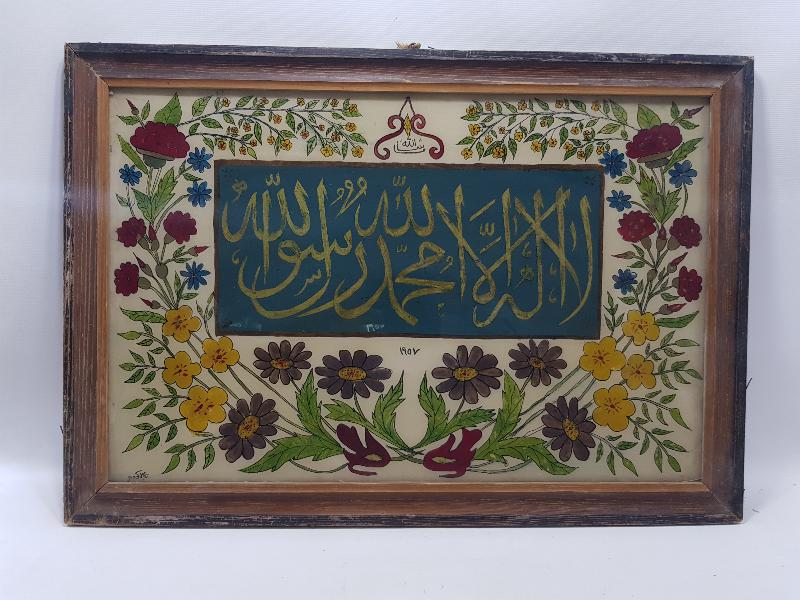 ما شاء الله
لا اله الا الله محمد رسول الله
١٩٥٧
١٩٥٧